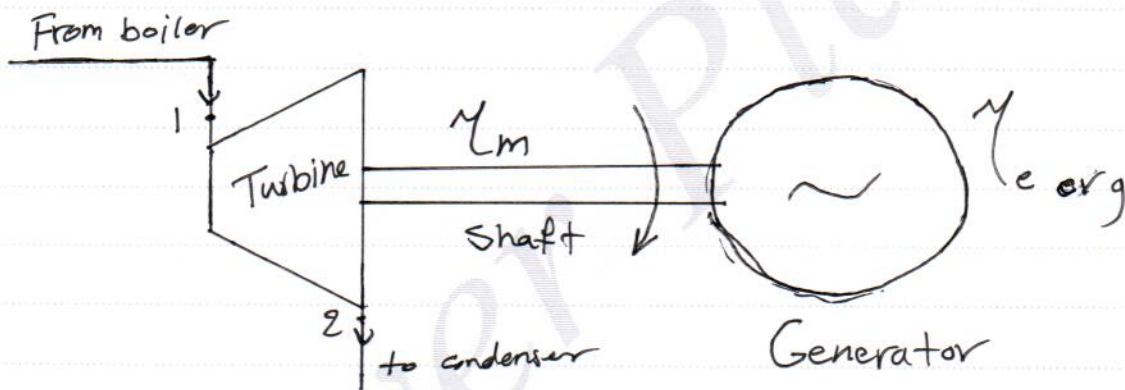 From boiler
1
Turbine
ηm
Shaft
ηe or g
2
to condenser
Generator